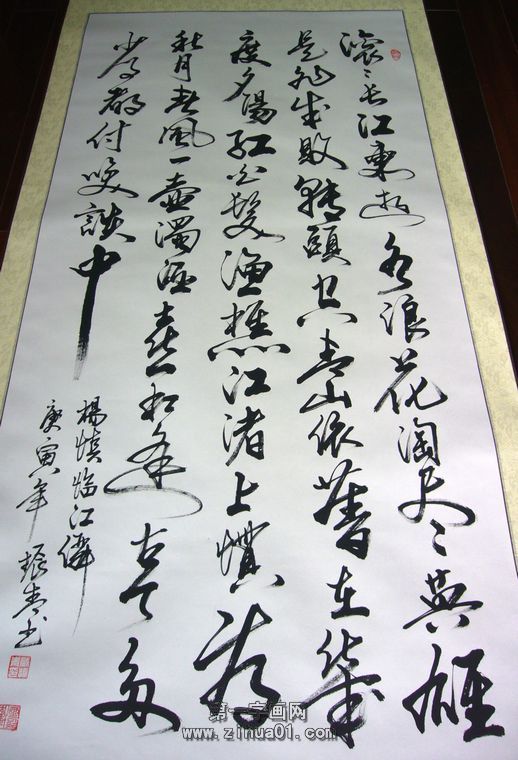 滚滚长江東逝水浪花淘尽英雄
是非成敗轉頭空青山依舊在幾
度夕陽红白髮渔樵江渚上惯看
秋月春風一壶濁酒喜相逢古今多
少事都付笑談中
楊慎临江僊
庚寅年 书
第一字画网
www.zihua01.com